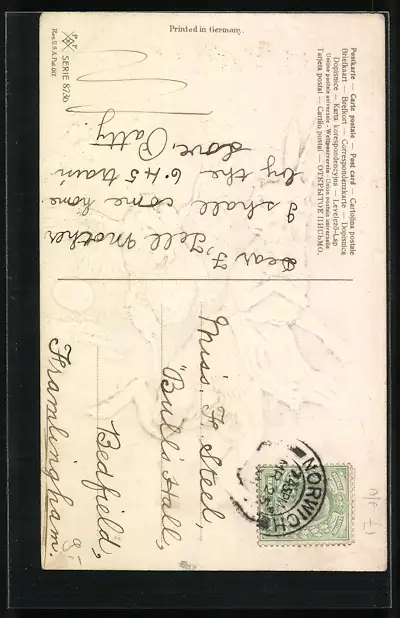 Postkarte — Carte postale — Post card — Cartolina postale
Briefkaart — Brefkort — Correspondenzkarte — Dopisnica
Dopisnice — Karta korespondencyjna — Levelező-Lap
Union postale universelle — Weltpostverein — Union postale universelle
Tarjeta postal — Cartão postal — ОТКРЫТОЕ ПИСЬМО.
Dear F, Tell Mother
I shall come home
by the 6.45 train
Love, Patty.
Printed in Germany.
SERIE 8736
Miss. F. Steel,
"Bull's Hall,
Bedfield,
Framlingham.
NORWICH